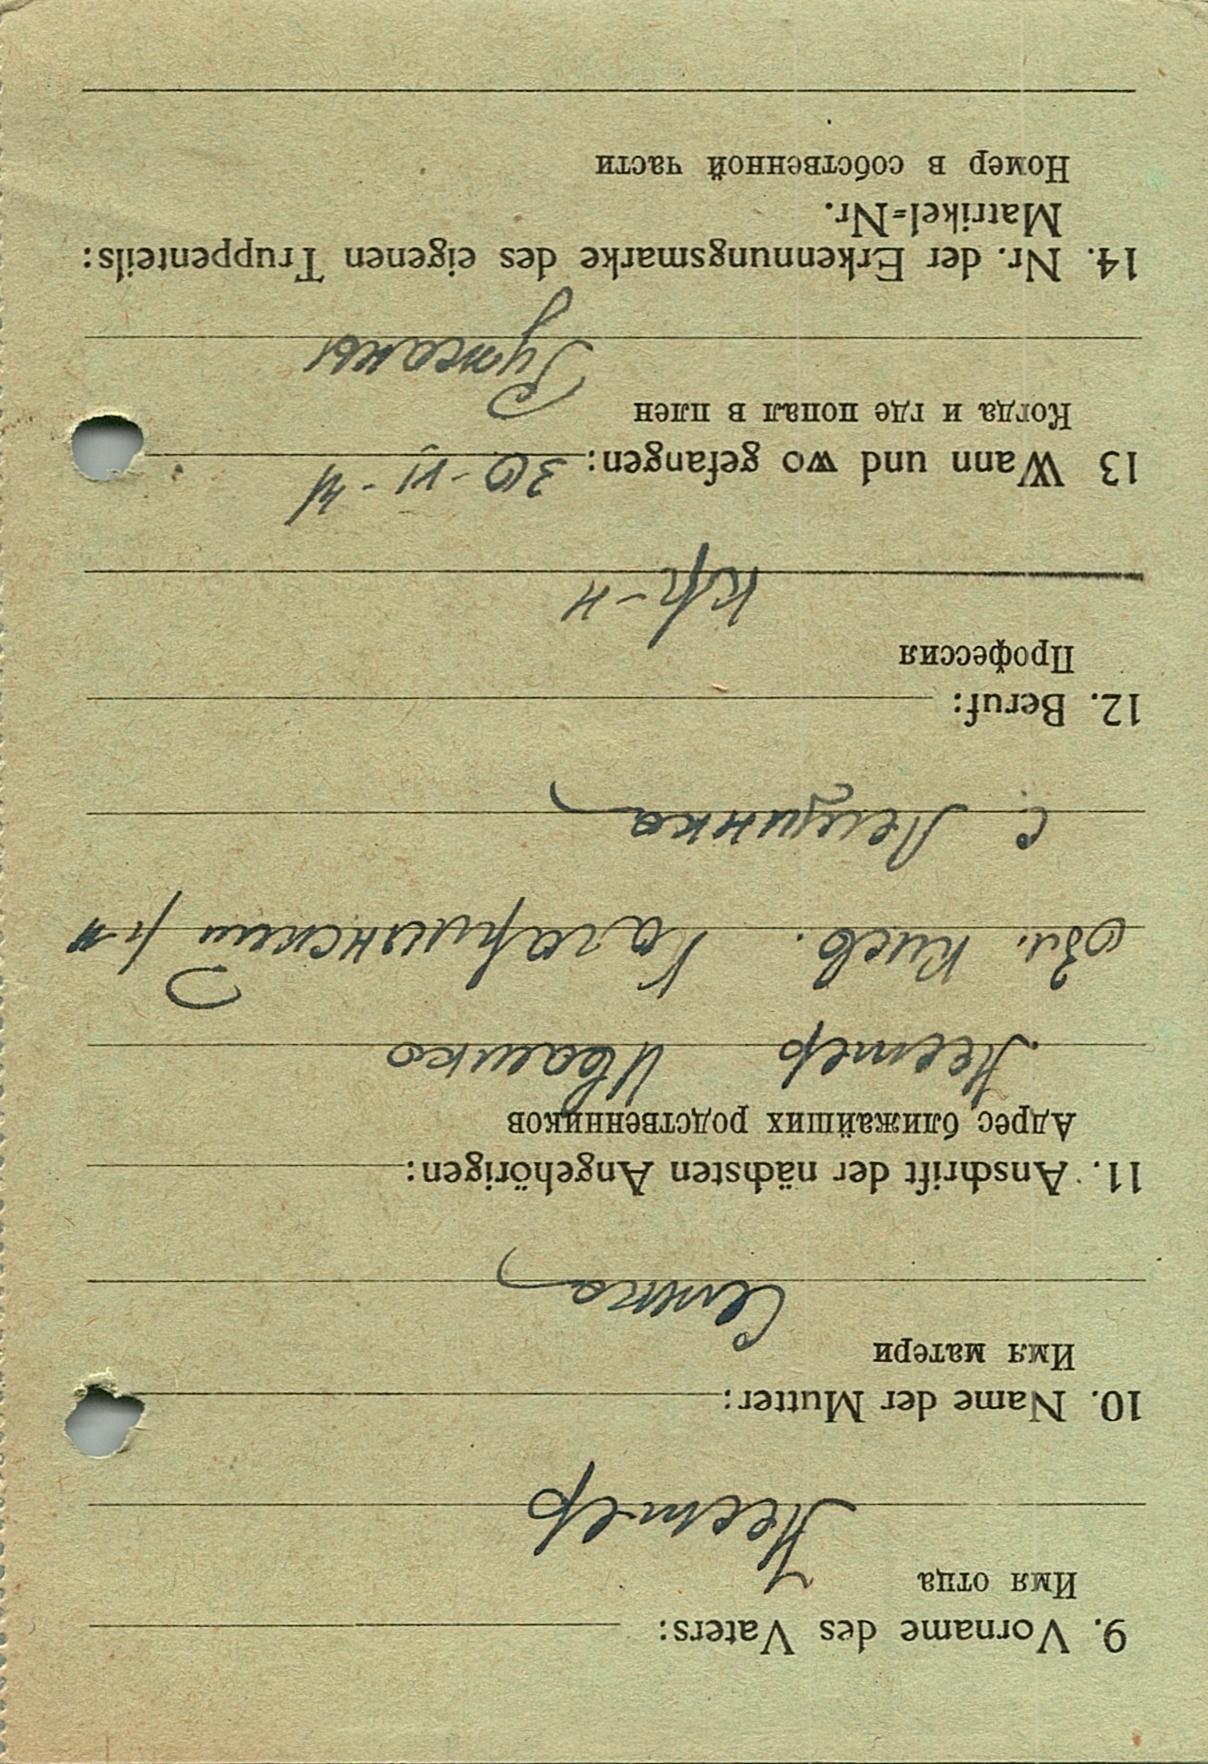 9. Vorname des Vaters:
Имя отца
Нестер
10. Name der Mutter:
Имя матери
11. Anschrift der nächsten Angehörigen:
Адрес ближайших родственников
Нестер Ивашко
Обл. Киев. р-н
с. Лещинка
12. Beruf:
Профессия
кр-н
13 Wann und wo gefangen: 30-VI-41
Когда и где попал в плен
Ружаны
14. Nr. der Erkennungsmarke des eigenen Truppenteils:
Matrikel=Nr.
Номер в собственной части